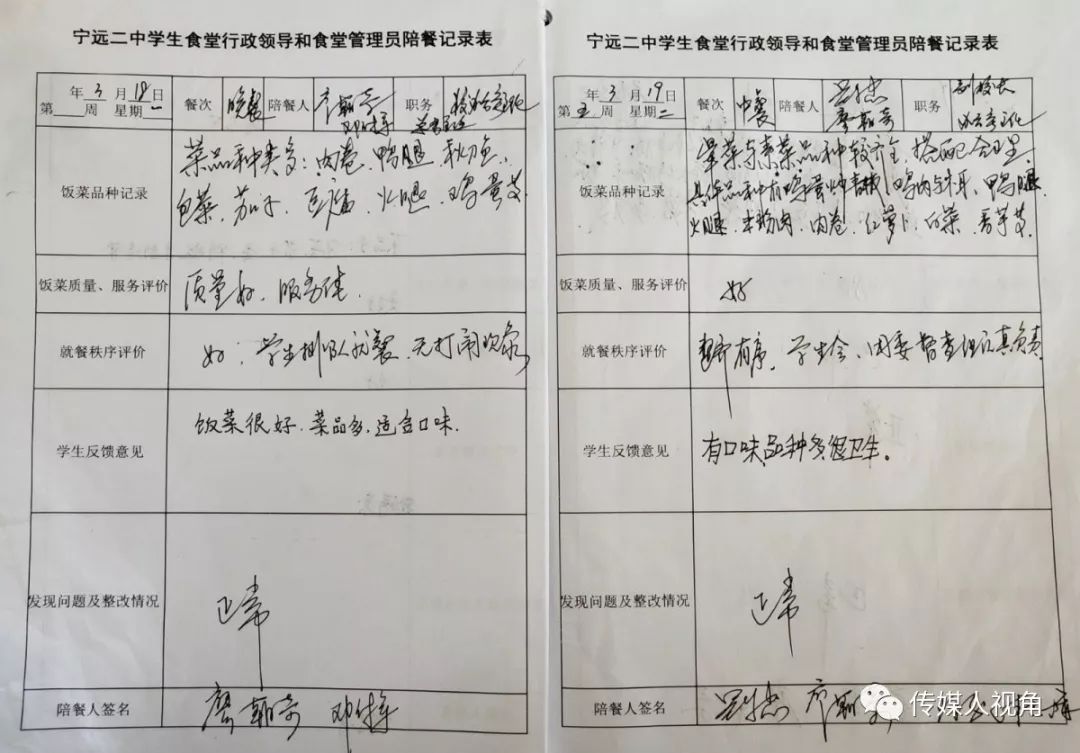 宁远二中学生食堂行政领导和食堂管理员陪餐记录表
年 3 月 18 日
第 周 星期一
餐次 晚餐 陪餐人 职务
饭菜品种记录
菜品种类多：肉卷、鸭腿、秋鱼、
包菜、茄子、豆腐、火腿、鸡蛋
饭菜质量、服务评价
质量好、服务佳.
就餐秩序评价
好：学生排队就餐、无打闹现象
学生反馈意见
饭菜很好、菜品多、适合口味.
发现问题及整改情况
正常
陪餐人签名
宁远二中学生食堂行政领导和食堂管理员陪餐记录表
年 3 月 19 日
第 五 周 星期二
餐次 中餐 陪餐人 职务 副校长
饭菜品种记录
荤菜与素菜品种较齐全、搭配合理
具体品种有鸡蛋炒青椒、鸡肉与木耳、鸭腿
火腿、米粉肉、肉卷、红萝卜、白菜、香芋
饭菜质量、服务评价
好
就餐秩序评价
有序、学生会、团委督查认真负责
学生反馈意见
有口味品种多很卫生。
发现问题及整改情况
正常
陪餐人签名
传媒人视角